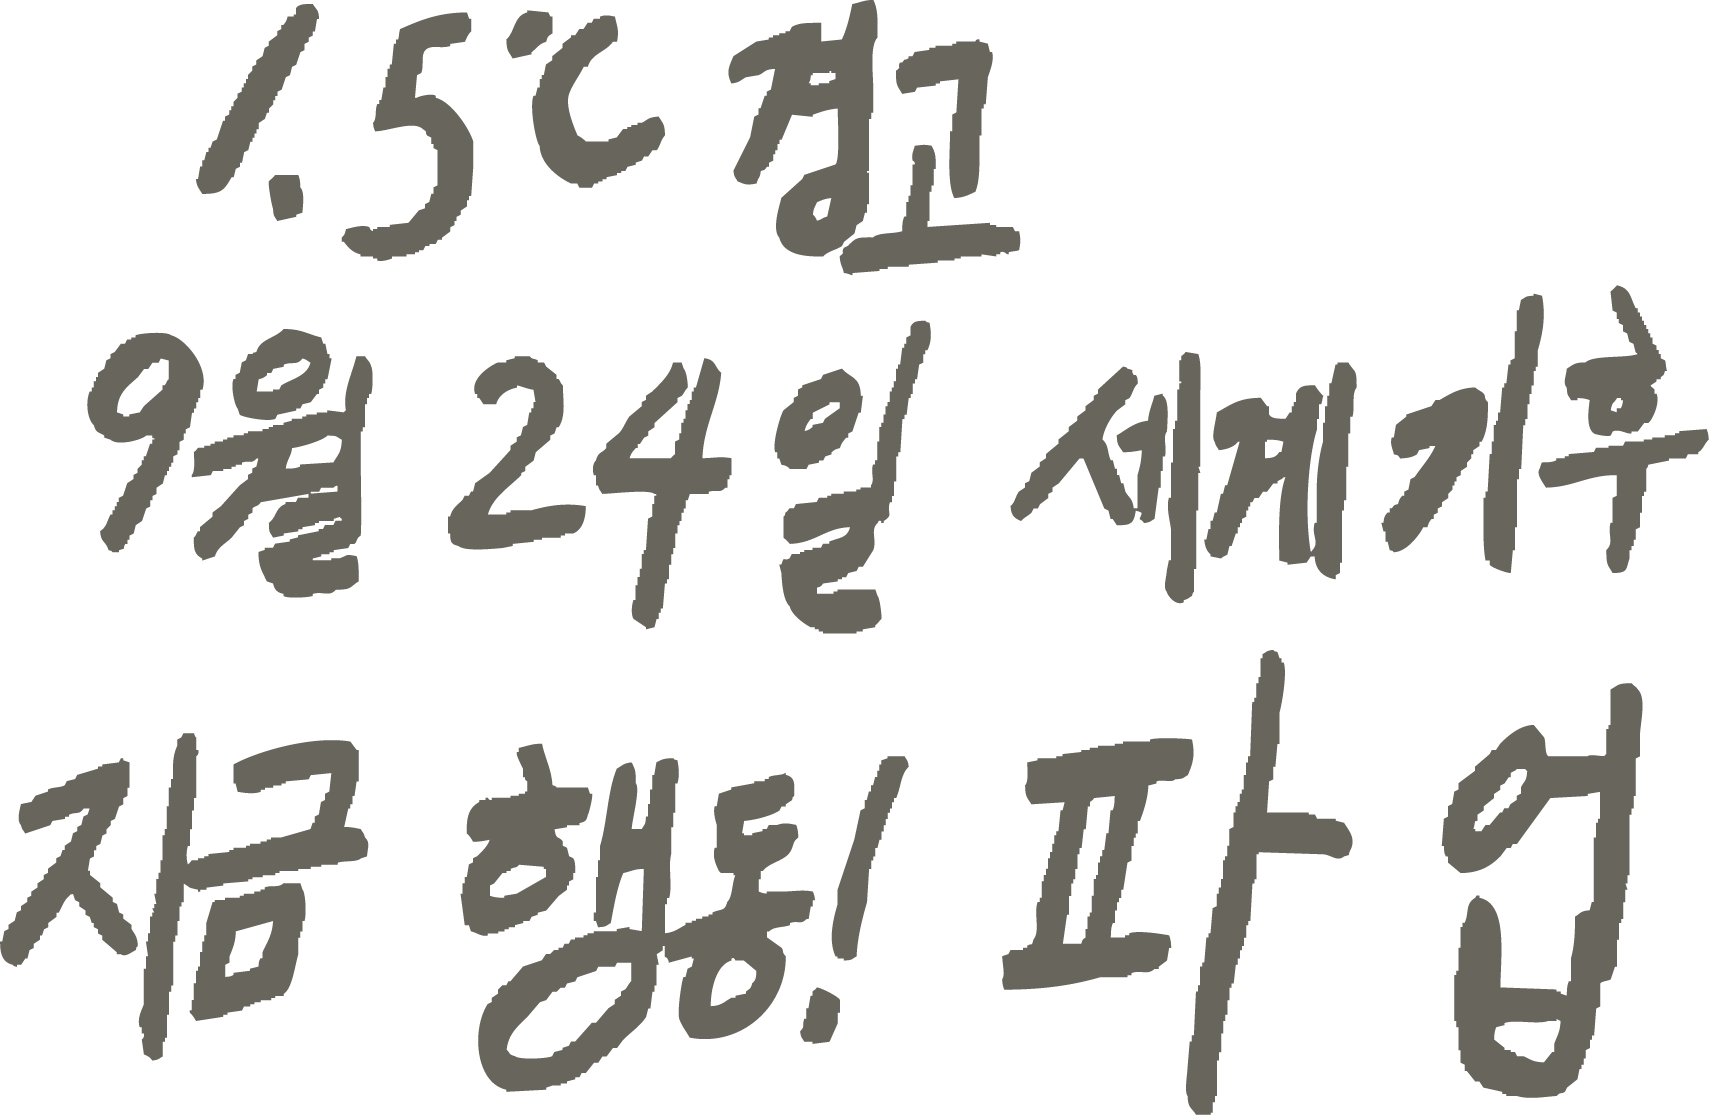 1.5℃ 경고
9월 24일 세계기후
지금 행동! 파업